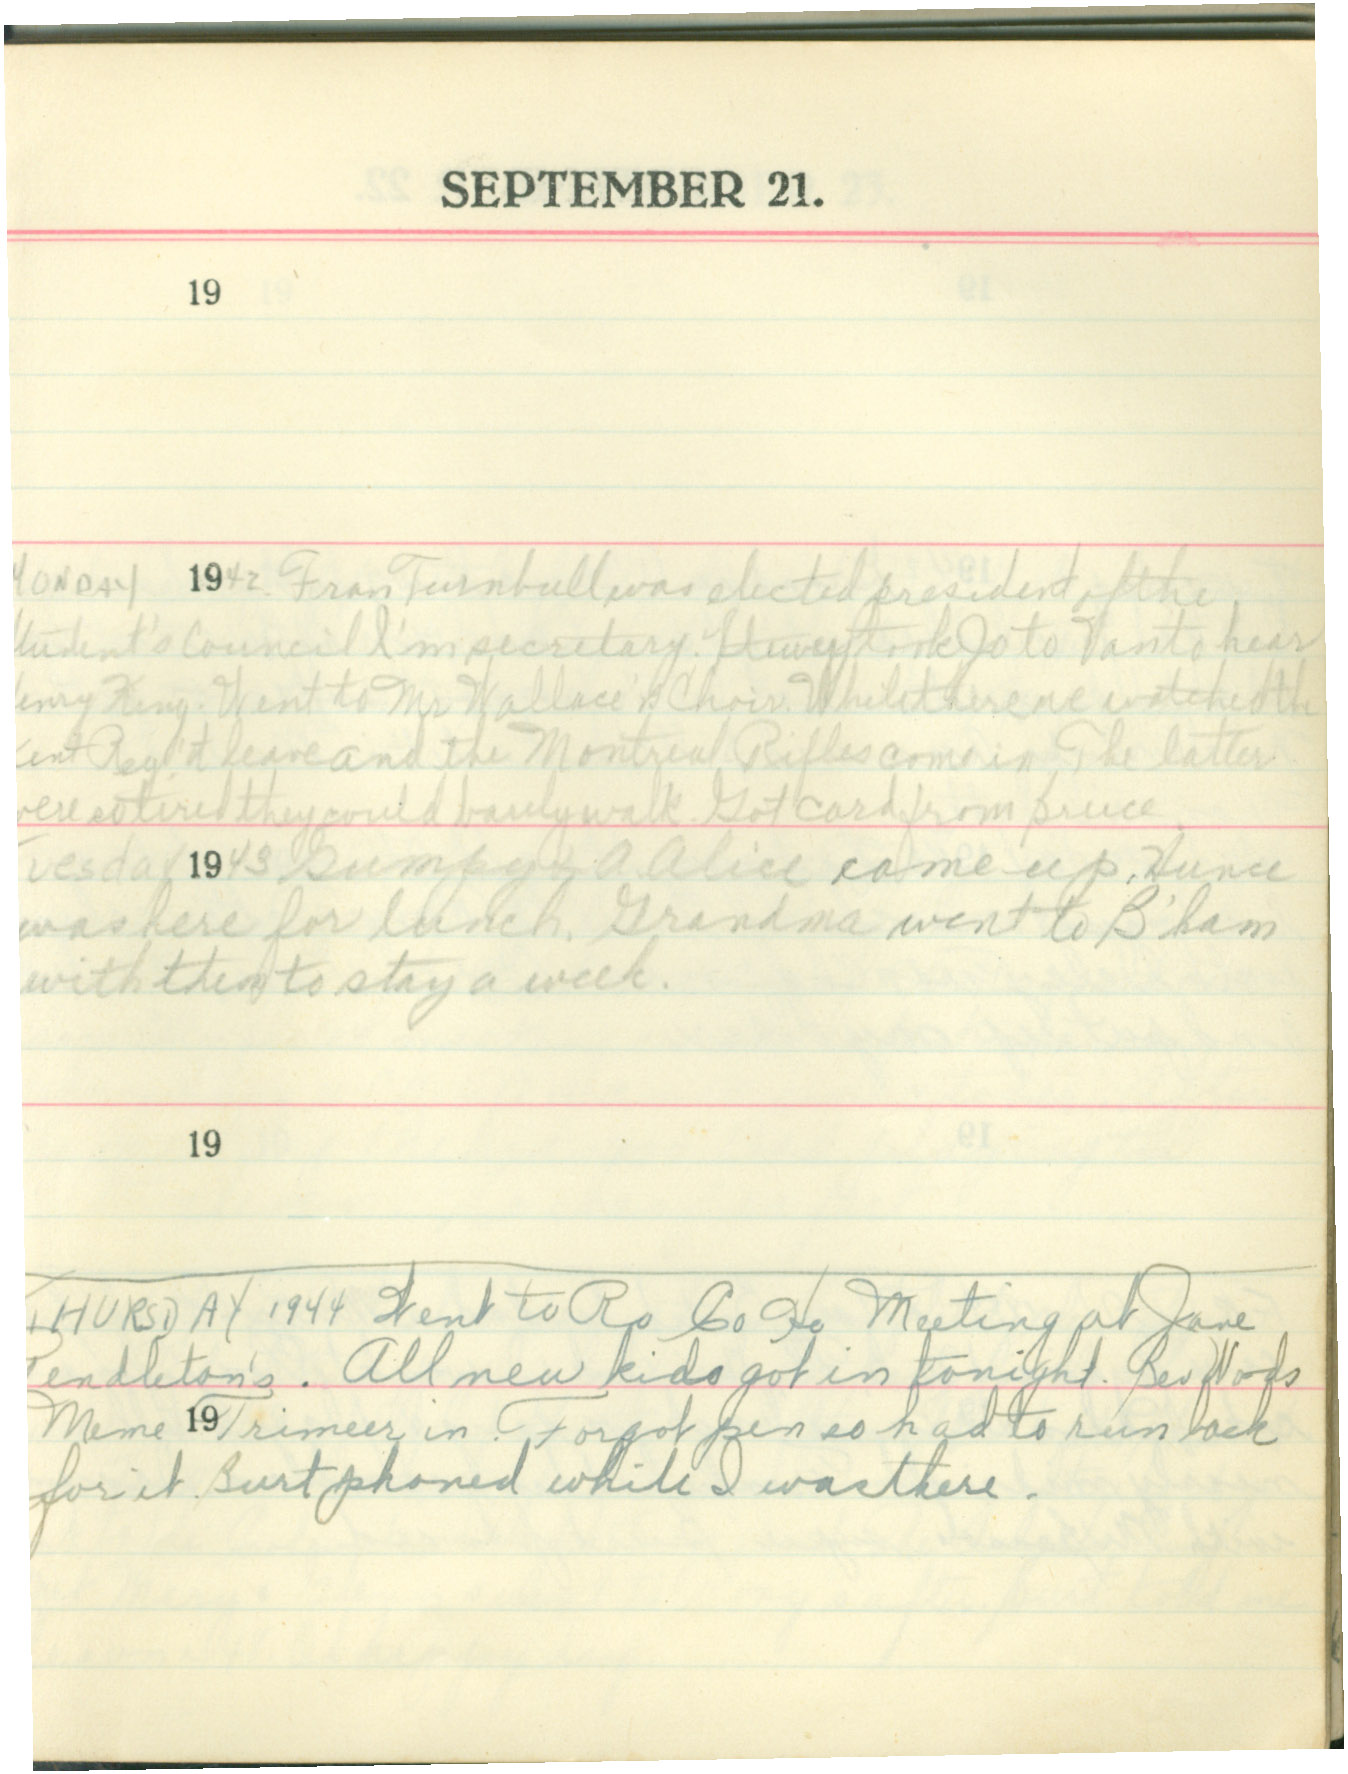 SEPTEMBER 21.
19
MONDAY 1942. Fran Turnbull was elected president of the
Student's Council I'm secretary. took Jo to Van to hear
Henry King. Went to Mr Wallace's Choir. Whilst there we watched the
Kent Reg't leave and the Montreal Rifles come in The latter
were so tired they could barely walk. Got card from Bruce
Tuesday 1943 Gumpy & A Alice came up.
was here for lunch. Grandma went to B'ham
with them to stay a week.
19
THURSDAY 1944 Went to Ro Co Ho Meeting at Jane
Pendleton's. All new kids got in tonight. Bev Woods
Meme 19 Trimeer in. Forgot pen so had to run back
for it. Burt phoned while I was there.